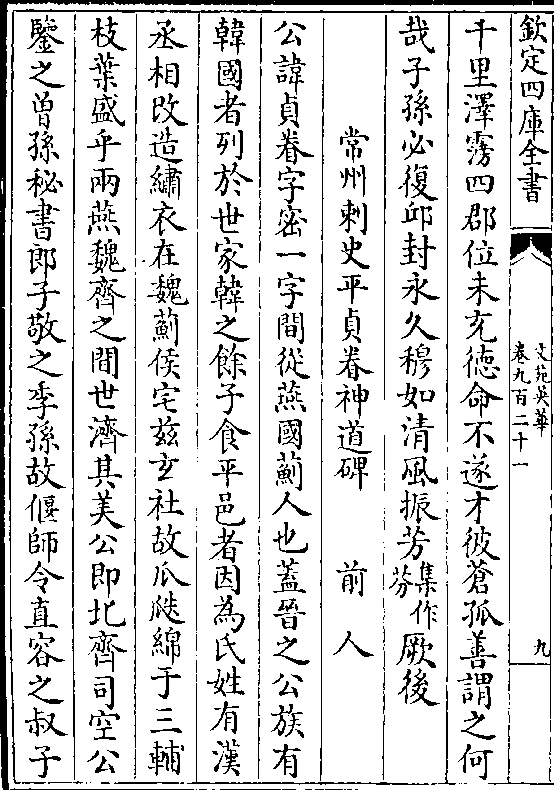 欽定四庫全書
文苑英華
卷九百二十一
九
千里澤霶四郡位未充德命不遂才彼蒼孤善謂之何
哉子孫必復邱封永久穆如清風振芳集作芬厥後
常州刺史平貞眷神道碑 前人
公諱貞眷字密一字間從燕國薊人也蓋晉之公族有
韓國者列於世家韓之餘子食平邑者因為氏姓有漢
丞相改造繡衣在魏薊侯宅兹玄社故瓜瓞綿于三輔
枝葉盛乎兩燕魏齊之間世濟其美公即北齊司空公
鑒之曽孫秘書郎子敬之季孫故偃師令直容之叔子